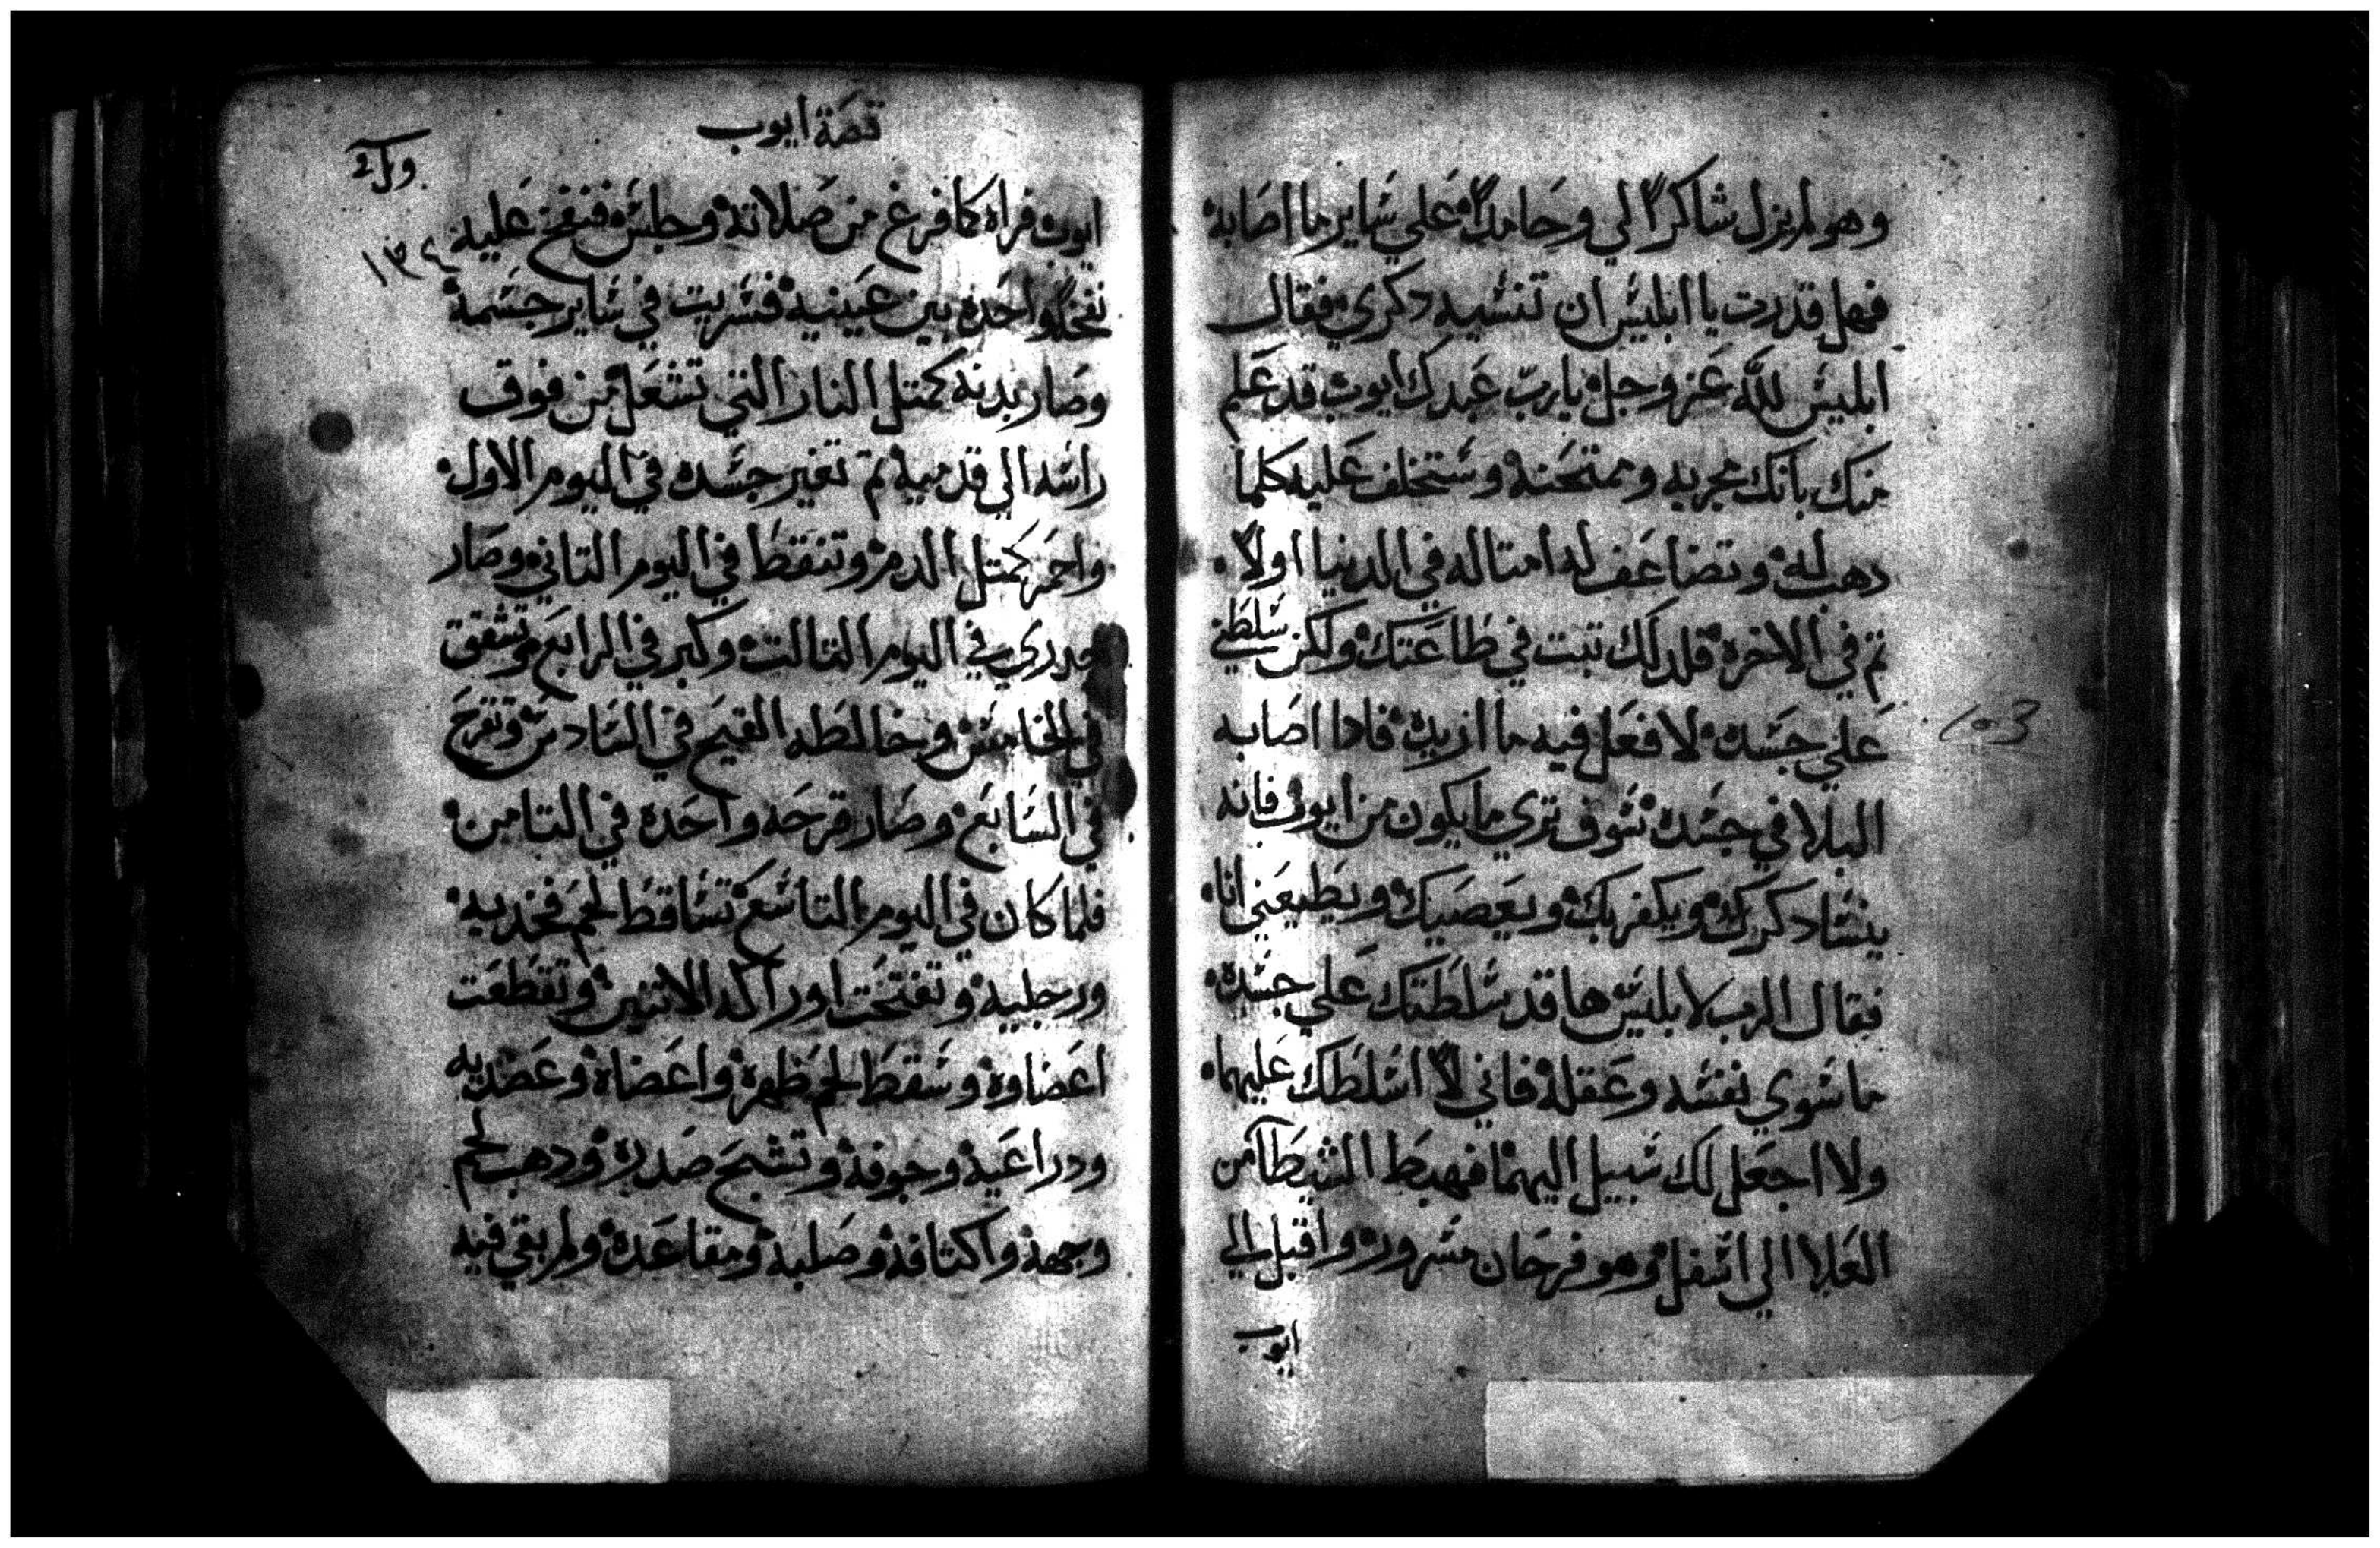 وهو لم يزل شاكراً لي وحامداً علي ساير ما اصابه
فهل قدرت يا ابليس ان تنسيه دكري فقال
ابليس لله عز وجل يا ربّ عبدك ايوب قد علم
منك بانك مجربه وممتحنه وستخلف عليه كلما
دهب له وتضاعف له امتاله في الدنيا اولاً
تم في الاخره فلدلك تبت في طاعتك ولكن سلطني
علي جسده لافعل فيه ما اريد فادا اصابه
البلا في جسده سوف تري ما يكون من ايوب فانه
ينسا دكرك ويكفر بك ويعصيك ويطيعني انا
فقال الرب لابليس ها قد سلطتك علي جسده
ما سوي نفسه وعقله فاني لا اسلطك عليهما
ولا اجعل لك سبيل اليهما فهبط الشيطان من
العلا الي اسفل وهو فرحان مسرور واقبل الي
ايوب
103
قصة ايوب
١٣٤
ايوب فراه كما فرغ من صلاته وجلس فنفخ عليه
نفخه واحده بين عينيه فسريت في ساير جسمه
وصار بدنه كمتل النار التي تشعل من فوق
راسه الي قدميه تم تغير جسده في اليوم الاول
واحمر كمتل الدم وتنقط في اليوم التاني وصار
جدري في اليوم التالت وكبر في الرابع وتشقق
في الخامس وخالطه القيح في السادس وتقرح
في السابع وصار قرحه واحده في التامن
فلما كان في اليوم التاسع تساقط لحم فخديه
ورجليه وتفتخت اوراكه الاتنين وتقطعت
اعضاوه وسقط لحم ظهره واعضاه وعضديه
ودراعيه وجوفه وتشبح صدره ودهب لحم
وجهه واكتافه وصلبه ومقاعده ولم بقي فيه